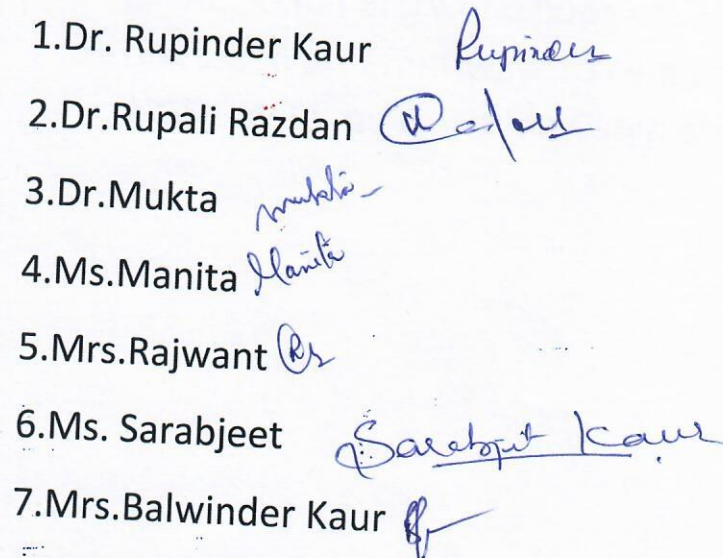 1.Dr. Rupinder Kaur Rupinder
2.Dr.Rupali Razdan
3.Dr.Mukta mukta
4.Ms.Manita Manita
5.Mrs.Rajwant
6.Ms. Sarabjeet Sarabjit Kaur
7.Mrs.Balwinder Kaur